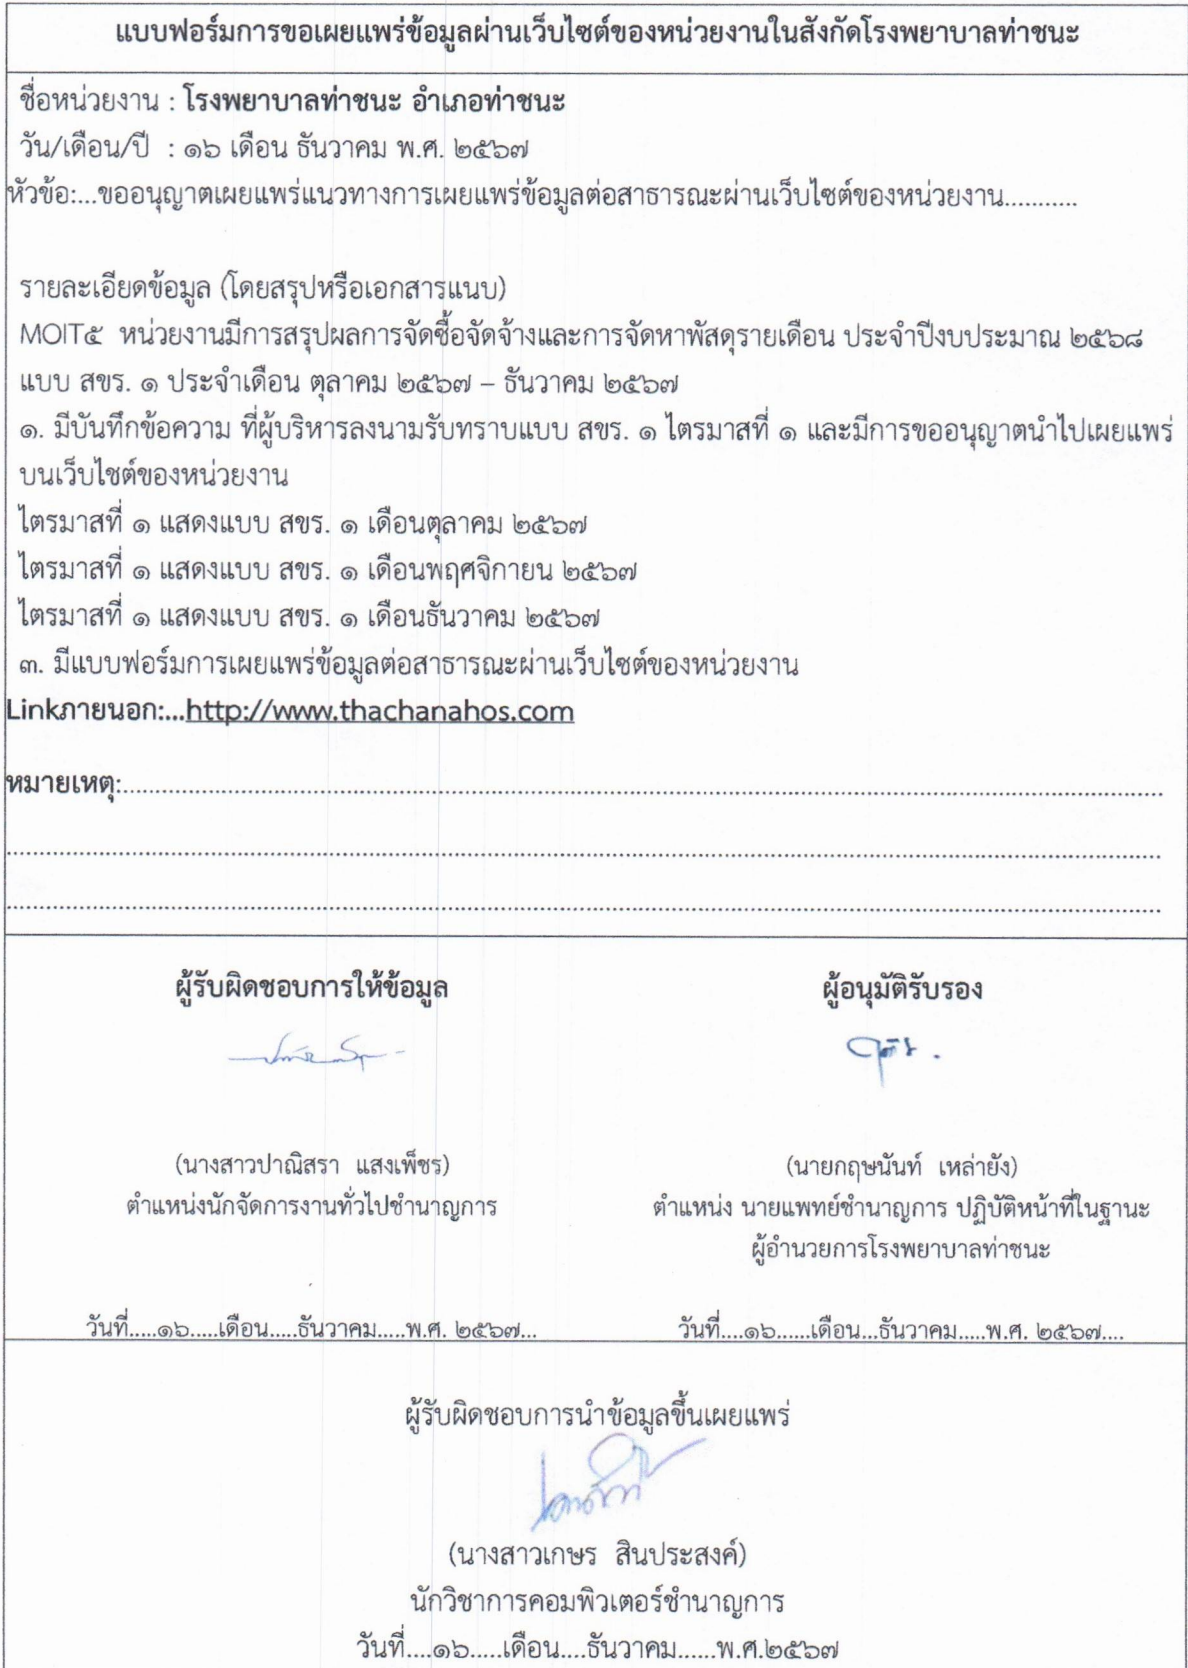 แบบฟอร์มการขอเผยแพร่ข้อมูลผ่านเว็บไซต์ของหน่วยงานในสังกัดโรงพยาบาลท่าชนะ
ชื่อหน่วยงาน : โรงพยาบาลท่าชนะ อำเภอท่าชนะ
วัน/เดือน/ปี : ๑๖ เดือน ธันวาคม พ.ศ. ๒๕๖๗
หัวข้อ:...ขออนุญาตเผยแพร่แนวทางการเผยแพร่ข้อมูลต่อสาธารณะผ่านเว็บไซต์ของหน่วยงาน...........
รายละเอียดข้อมูล (โดยสรุปหรือเอกสารแนบ)
MOIT๕ หน่วยงานมีการสรุปผลการจัดซื้อจัดจ้างและการจัดหาพัสดุรายเดือน ประจำปีงบประมาณ ๒๕๖๘
แบบ สขร. ๑ ประจำเดือน ตุลาคม ๒๕๖๗ – ธันวาคม ๒๕๖๗
๑. มีบันทึกข้อความ ที่ผู้บริหารลงนามรับทราบแบบ สขร. ๑ ไตรมาสที่ ๑ และมีการขออนุญาตนำไปเผยแพร่
บนเว็บไซต์ของหน่วยงาน
ไตรมาสที่ ๑ แสดงแบบ สขร. ๑ เดือนตุลาคม ๒๕๖๗
ไตรมาสที่ ๑ แสดงแบบ สขร. ๑ เดือนพฤศจิกายน ๒๕๖๗
ไตรมาสที่ ๑ แสดงแบบ สขร. ๑ เดือนธันวาคม ๒๕๖๗
๓. มีแบบฟอร์มการเผยแพร่ข้อมูลต่อสาธารณะผ่านเว็บไซต์ของหน่วยงาน
Linkภายนอก:...http://www.thachanahos.com
หมายเหตุ:..........
ผู้รับผิดชอบการให้ข้อมูล
(นางสาวปาณิสรา แสงเพ็ชร)
ตำแหน่งนักจัดการงานทั่วไปชำนาญการ
วันที่.....๑๖.....เดือน.....ธันวาคม.....พ.ศ. ๒๕๖๗...
ผู้อนุมัติรับรอง
(นายกฤษนันท์ เหล่ายัง)
ตำแหน่ง นายแพทย์ชำนาญการ ปฏิบัติหน้าที่ในฐานะ
ผู้อำนวยการโรงพยาบาลท่าชนะ
วันที่....๑๖......เดือน...ธันวาคม.....พ.ศ. ๒๕๖๗....
ผู้รับผิดชอบการนำข้อมูลขึ้นเผยแพร่
(นางสาวเกษร สินประสงค์)
นักวิชาการคอมพิวเตอร์ชำนาญการ
วันที่....๑๖.....เดือน....ธันวาคม......พ.ศ.๒๕๖๗